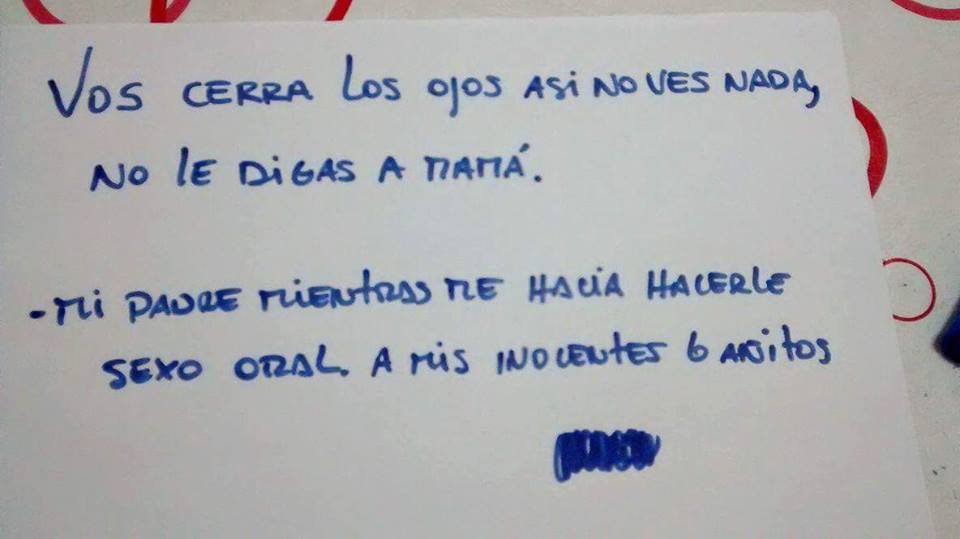 VOS CERRA LOS OJOS ASI NO VES NADA,
NO LE DIGAS A MAMÁ.
- MI PADRE MIENTRAS ME HACIA HACERLE
SEXO ORAL. A MIS INOCENTES 6 AÑITOS